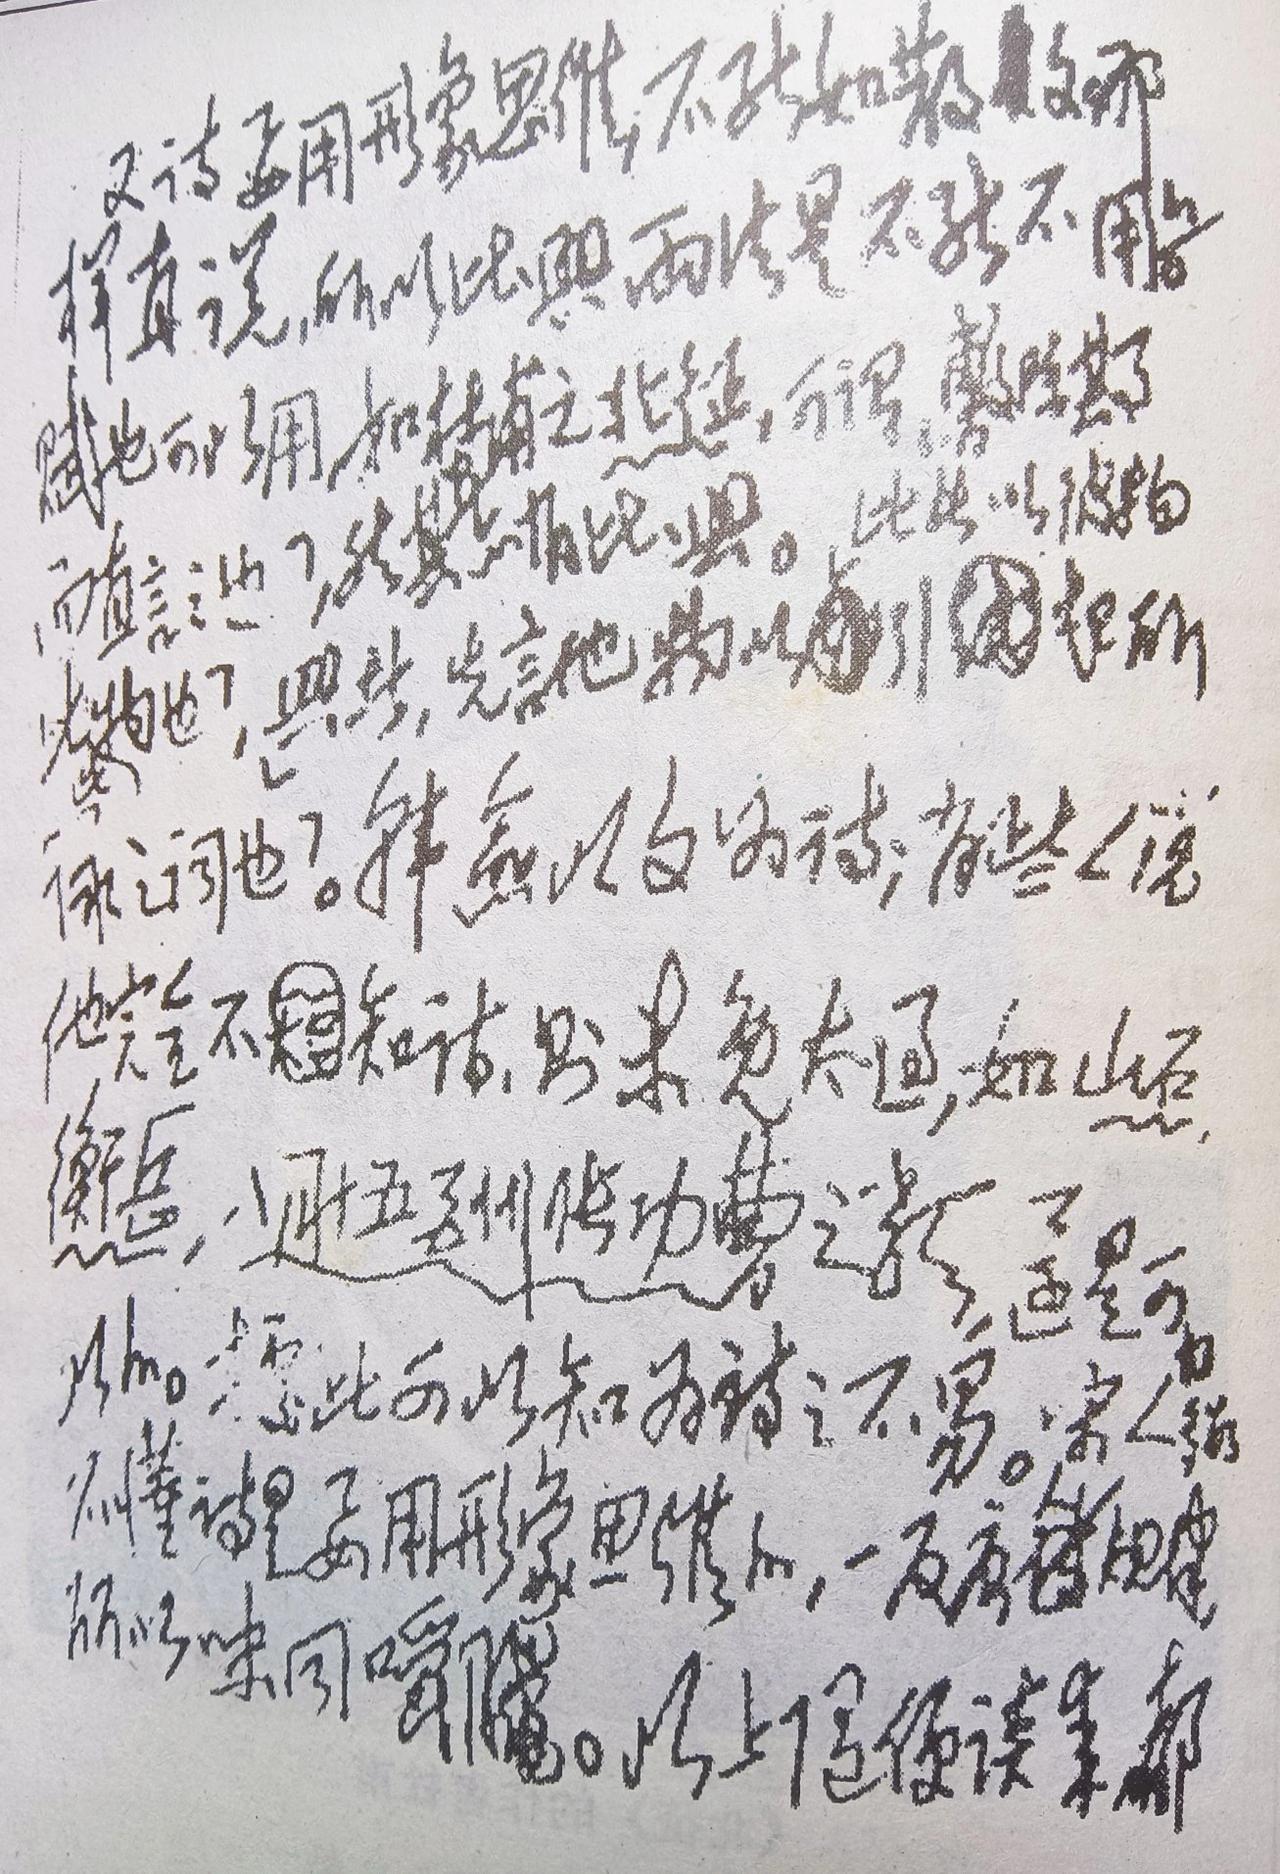 又诗要用形象思维,不能如散文那
样直说,所以比、興两法是不能不用的。
赋也可以用,如杜甫之北征,可谓“敷陈其事
而直言之也”,然其中亦有比、興。比者,以彼物
比此物也”,興者,先言他物以引起所
咏之词也”。韩愈以文为诗;有些人说
他完全不知诗,则未免太过,如山石,
衡岳,八月十五酬张功曹之类,还是可
以的。据此可以知为诗之不易。宋人多数
不懂诗是要用形象思维的,一反唐人规律,
所以味同嚼蜡。以上随便谈来,都